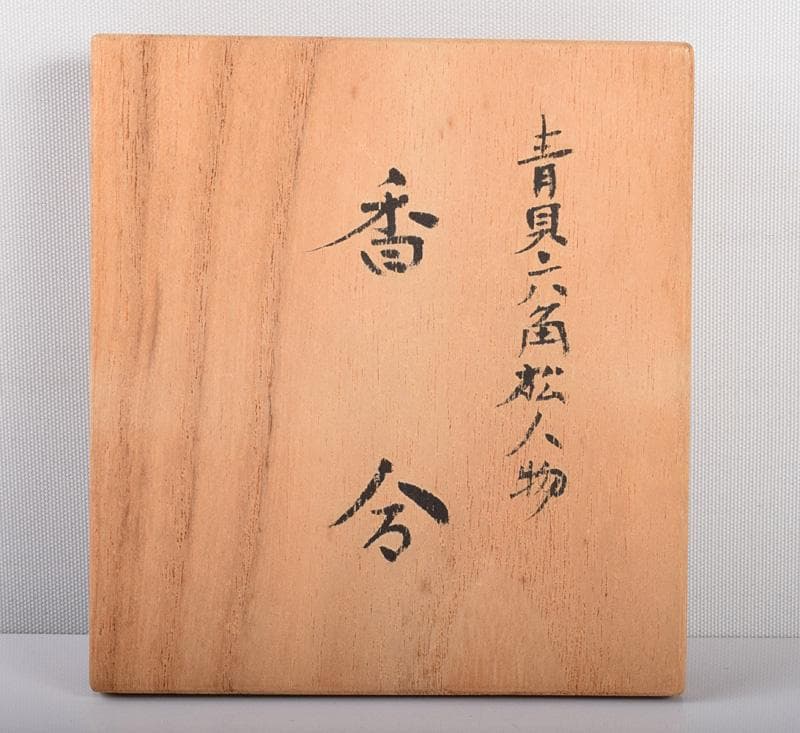 青貝六角松人物
香合